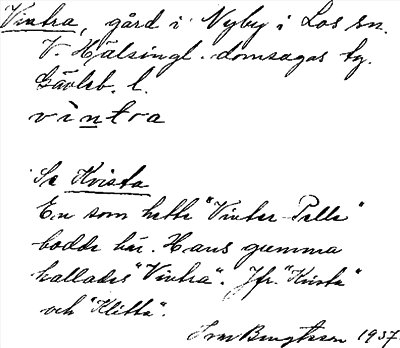 Vintra, gård i Nyby i Los sn.
V. Hälsingl. domsagas tg.
Gävleb. l.
vìntra
Se Kvista
En som hette "Vinter-Pelle"
bodde här. Hans gumma
kallades "Vintra". Jfr. "Kvista"
och "Klitta".
Bengtsson 1937